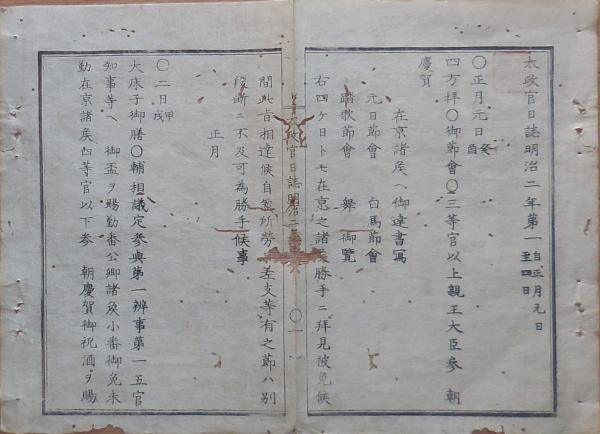 太政官日誌明治二年第一 自正月元日 至四日
〇正月元日 癸酉
四方拜〇御節會〇三等官以上親王大臣參 朝
慶賀
在京諸矦ヘ御達書寫
元日節會 白馬節會
踏歌節會 舞御覽
右四ケ日トモ在京之諸矦勝手ニ拜見被免候
間此旨相達候自然所勞差支等有之節ハ別
段斷ニ不及可為勝手候事
正月
〇二日 甲戌
大床子御膳〇輔相議定參與第一辨事第一五官
知事等ヘ 御盃ヲ賜勤番公卿諸矦小番御免未
勤在京諸矦四等官以下參 朝慶賀御祝酒ヲ賜
太政官日誌明治二
〇一